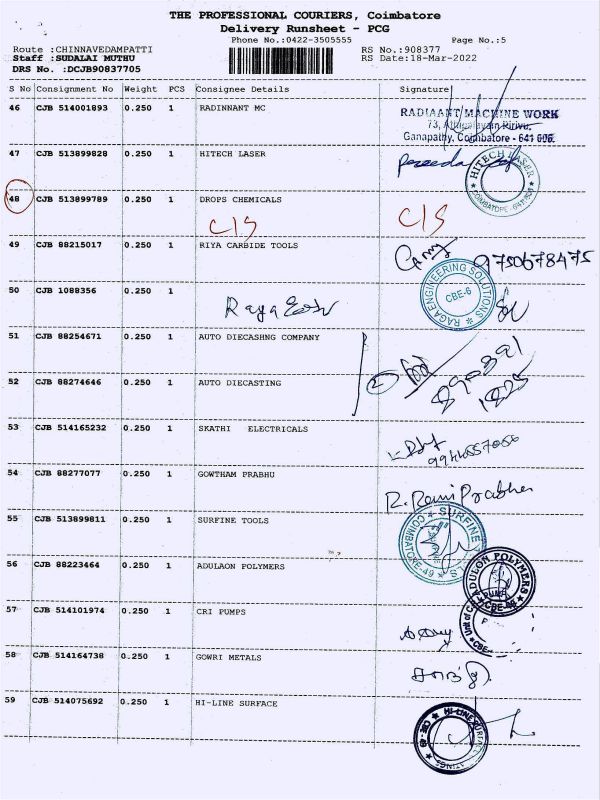 THE PROFESSIONAL COURIERS, Coimbatore
Delivery Runsheet - PCG
Phone No.:0422-3505555 Page No.:5
Route :CHINNAVEDAMPATTI RS No.:908377
Staff :SUDALAI MUTHU RS Date:18-Mar-2022
DRS No. :DCJB90837705
S No Consignment No Weight PCS Consignee Details Signature
46 CJB 514001893 0.250 1 RADINNANT MC
RADIAANT MACHINE WORK
73,
Ganapathy, Coimbatore - 641 006.
47 CJB 513899828 0.250 1 HITECH LASER
HITECH LASER COIMBATORE
48 CJB 513899789 0.250 1 DROPS CHEMICALS
C/S C/S
49 CJB 88215017 0.250 1 RIYA CARBIDE TOOLS
9750678475
RAGA ENGINEERING SOLUTIONS CBE-6
50 CJB 1088356 0.250 1
Raga
51 CJB 88254671 0.250 1 AUTO DIECASHNG COMPANY
52 CJB 88274646 0.250 1 AUTO DIECASTING
53 CJB 514165232 0.250 1 SKATHI ELECTRICALS
54 CJB 88277077 0.250 1 GOWTHAM PRABHU
R. Rami Prabha
55 CJB 513899811 0.250 1 SURFINE TOOLS
SURFINE COIMBATORE-49
56 CJB 88223464 0.250 1 ADULAON POLYMERS
ADULON POLYMERS
57 CJB 514101974 0.250 1 CRI PUMPS
58 CJB 514164738 0.250 1 GOWRI METALS
59 CJB 514075692 0.250 1 HI-LINE SURFACE
HI-LINE SURFACE CBE-49